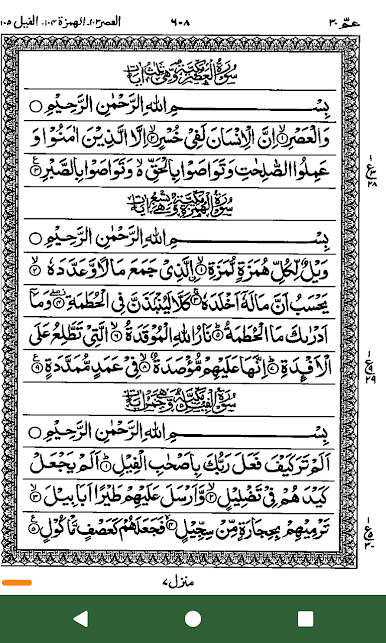 عمّ ٣٠ ٦٠٨ العصر ١٠٣، الهمزة ١٠٤، الفیل ١٠٥
سُوْرَةُ الْعَصْرِ مَكِّيَّةٌ وَّهِيَ ثَلٰثُ اٰيَاتٍ
بِسْـــــمِ اللهِ الرَّحْمٰنِ الرَّحِيْمِ ○
وَالْعَصْرِ ۙ۱ اِنَّ الْاِنْسَانَ لَفِيْ خُسْرٍ ۙ۲ اِلَّا الَّذِيْنَ اٰمَنُوْا وَ
عَمِلُوا الصّٰلِحٰتِ وَتَوَاصَوْا بِالْحَقِّ ۙ۬ وَتَوَاصَوْا بِالصَّبْرِ ۳
ع ٢٨
سُوْرَةُ الْهُمَزَةِ مَكِّيَّةٌ وَّهِيَ تِسْعُ اٰيَاتٍ
بِسْـــــمِ اللهِ الرَّحْمٰنِ الرَّحِيْمِ ○
وَيْلٌ لِّكُلِّ هُمَزَةٍ لُّمَزَةِ ۙ۱ اۨلَّذِيْ جَمَعَ مَالًا وَّعَدَّدَهٗ ۙ۲
يَحْسَبُ اَنَّ مَالَهٗۤ اَخْلَدَهٗ ۚ۳ كَلَّا لَيُنْۢبَذَنَّ فِي الْحُطَمَةِ ۖ۴ وَمَاۤ
اَدْرٰىكَ مَا الْحُطَمَةُ ؕ۵ نَارُ اللهِ الْمُوْقَدَةُ ۙ۶ الَّتِيْ تَطَّلِعُ عَلَى
الْاَفْـِٕدَةِ ؕ۷ اِنَّهَا عَلَيْهِمْ مُّؤْصَدَةٌ ۙ۸ فِيْ عَمَدٍ مُّمَدَّدَةٍ ۹
ع ٢٩
سُوْرَةُ الْفِيْلِ مَكِّيَّةٌ وَّهِيَ خَمْسُ اٰيَاتٍ
بِسْـــــمِ اللهِ الرَّحْمٰنِ الرَّحِيْمِ ○
اَلَمْ تَرَ كَيْفَ فَعَلَ رَبُّكَ بِاَصْحٰبِ الْفِيْلِ ؕ۱ اَلَمْ يَجْعَلْ
كَيْدَهُمْ فِيْ تَضْلِيْلٍ ۙ۲ وَّاَرْسَلَ عَلَيْهِمْ طَيْرًا اَبَابِيْلَ ۙ۳
تَرْمِيْهِمْ بِحِجَارَةٍ مِّنْ سِجِّيْلٍ ۪ۙ۴ فَجَعَلَهُمْ كَعَصْفٍ مَّاْكُوْلٍ ۵
ع ٣٠
منزل ٧